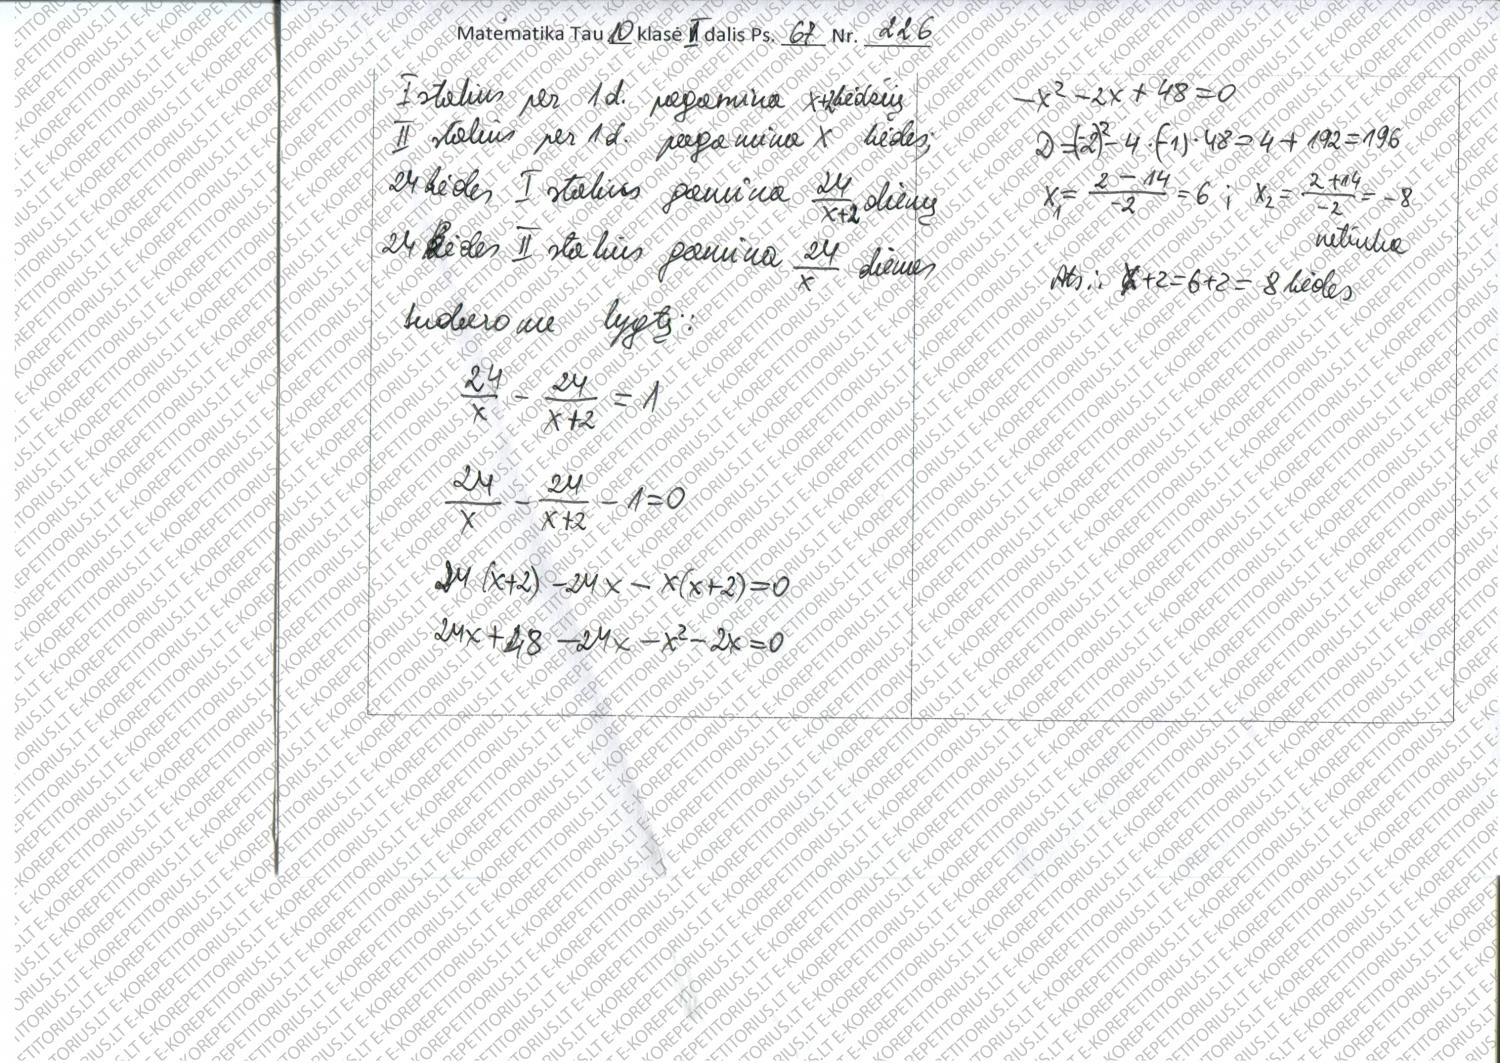 Matematika Tau 10 klasė II dalis Ps. 67 Nr. 226
I stalius per 1 d. pagamina x+2 kėdžių
II stalius per 1 d. pagamina x kėdes;
24 kėdes I stalius gamina 24/(x+2) dienų
24 kėdes II stalius gamina 24/x dienas
Sudarome lygtį:
24/x - 24/(x+2) = 1
24/x - 24/(x+2) - 1 = 0
24(x+2) - 24x - x(x+2) = 0
24x + 48 - 24x - x² - 2x = 0
-x² - 2x + 48 = 0
D = (-2)² - 4·(-1)·48 = 4 + 192 = 196
x₁ = (2 - 14)/(-2) = 6; x₂ = (2 + 14)/(-2) = -8
netinka
Ats.: x+2 = 6+2 = 8 kėdes
E-KOREPETITORIUS.LT